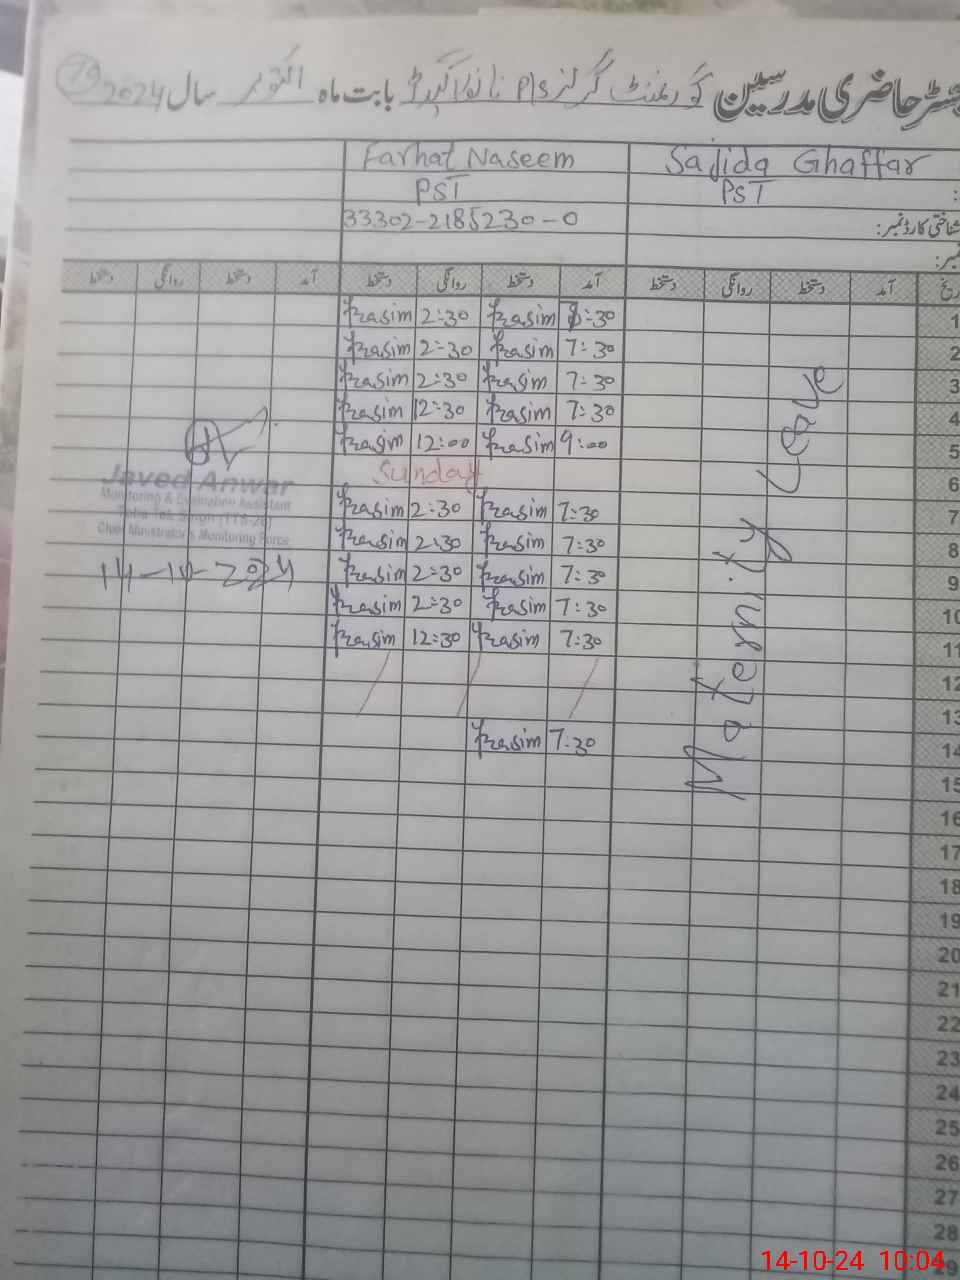 رجسٹر حاضری مدرسین گورنمنٹ گرلز P/S بابت ماہ اکتوبر سال 2024
Farhat Naseem Sajida Ghaffar
PST PST
33302-2185230-0 شناختی کارڈ نمبر:
نمبر:
دستخط روانگی دستخط آمد دستخط روانگی دستخط آمد دستخط روانگی دستخط آمد تاریخ
2:30 8:30 1
2:30 7:30 2
2:30 7:30 3
12:30 7:30 4
12:00 9:00 5
Sunday 6
2:30 7:30 7
2:30 7:30 8
2:30 7:30 9
2:30 7:30 10
12:30 7:30 11
12
13
7:30 14
15
16
17
18
19
20
21
22
23
24
25
26
27
28
29
Maternity Leave
Javed Anwar
Monitoring & Evaluation Assistant
Toba Tek Singh
Chief Minister's Monitoring Force
14-10-2024
14-10-24 10:04